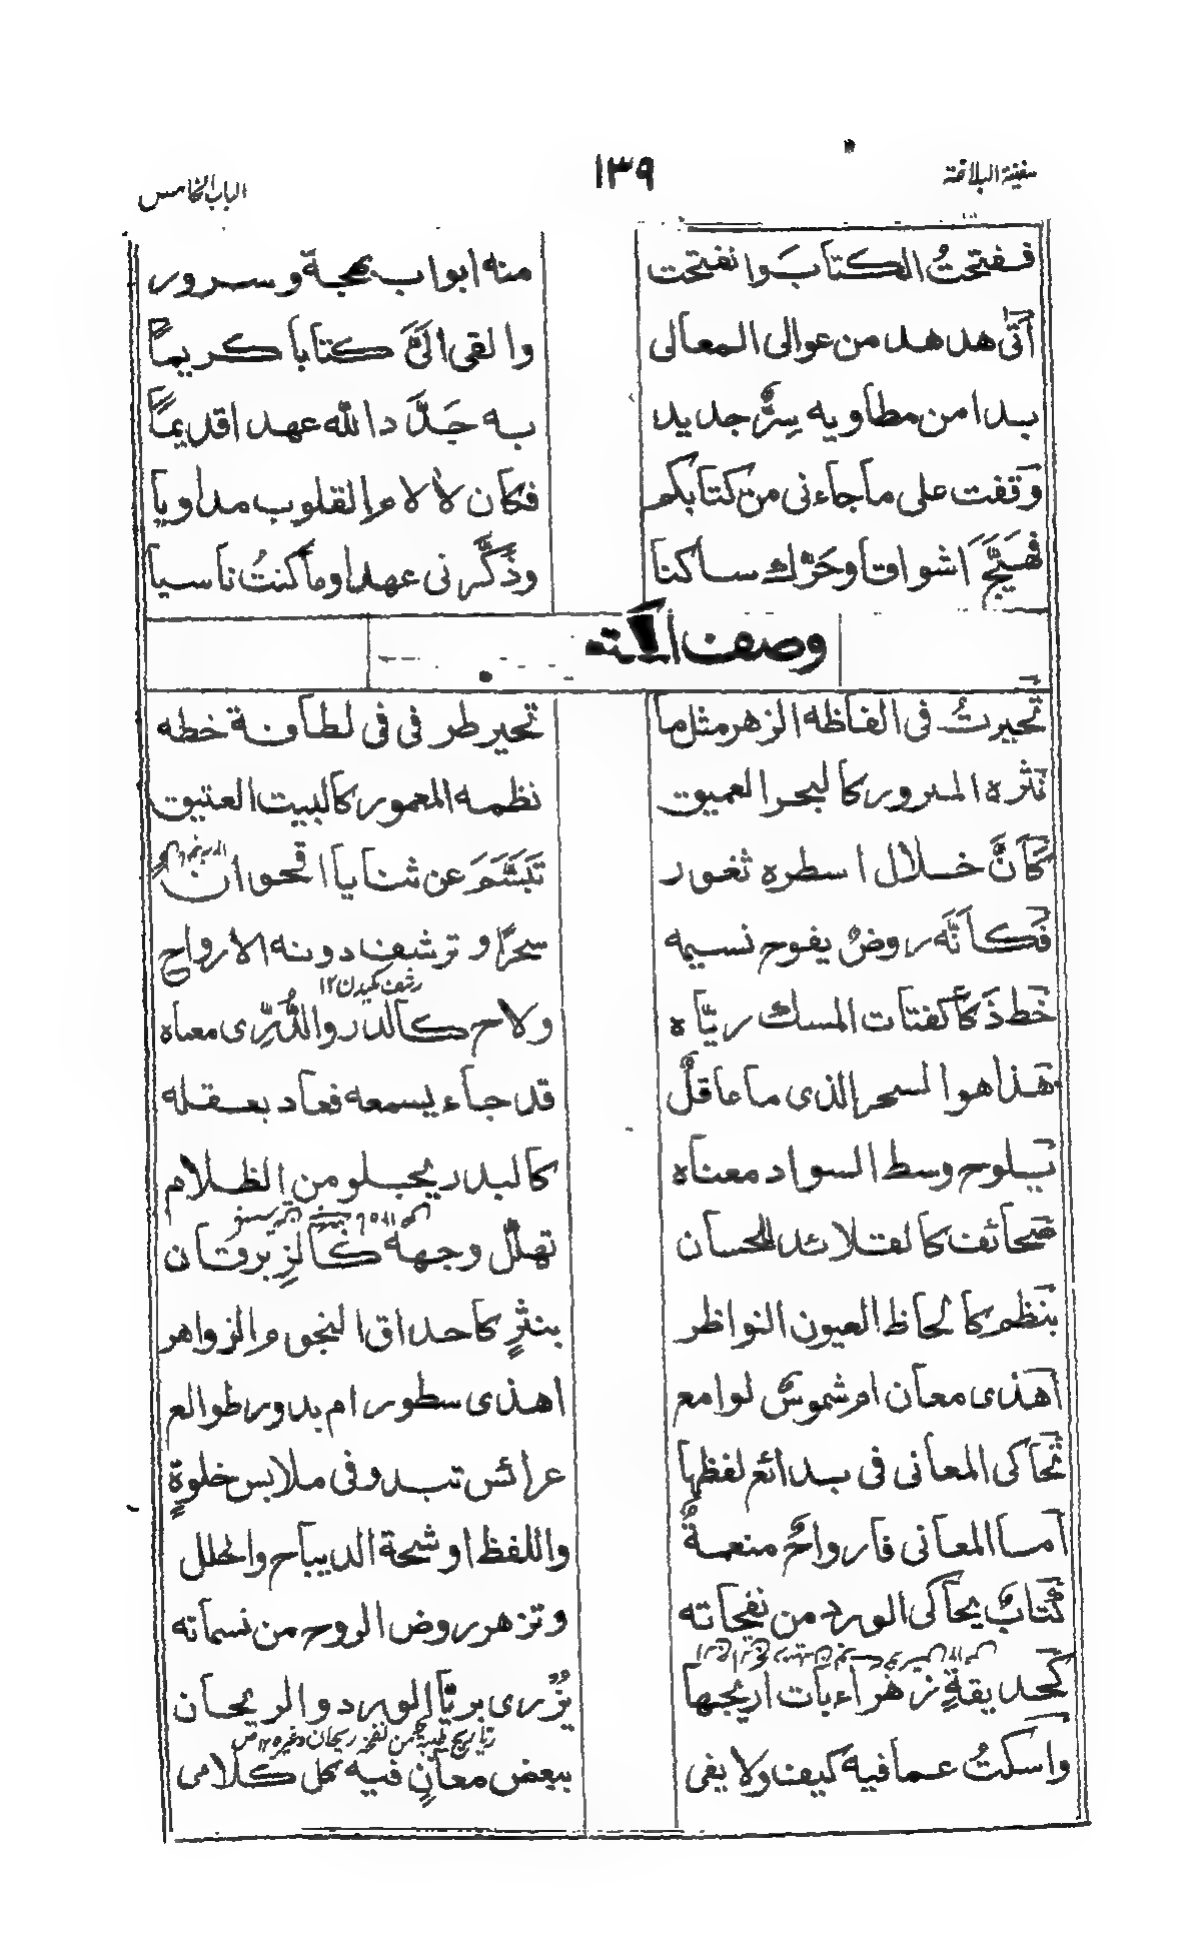 سفينة البلاغة ١٣٩ الباب الخامس
ففتحتُ الكتابَ وانفتحت منه ابواب بهجة وسرور
أتى هدهد من عوالى المعالى والقى الىَّ كتاباً كريماً
بدا من مطاويه سِرٌّ جديد به جَدَّد الله عهدا قديماً
وقفت على ما جاءنى من كتابكم فكان لآلام القلوب مداويا
فهَيَّجَ اشواقا وحَرَّك ساكنا وذَكَّرنى عهدا وما كنتُ ناسيا
وصف الكتب
تحيرتُ فى الفاظه الزهر مثل ما تحير طرفى فى لطافة خطه
نثره المسرور كالبحر العميق نظمه المعمور كالبيت العتيق
كأنَّ خلال اسطره ثغور تَبَسَّمَ عن ثنايا اقحوان
فكأنَّه روضٌ يفوح نسيمه سحرًا و ترشف دونه الارواح
رشف مكيدن ١٢
خط ذَكَا كفتات المسك ريَّاه ولاح كالدر والدُّرِّى معناه
هذا هو السحر الذى ما عاقلٌ قد جاء يسمعه فعاد بعقله
يلوح وسط السواد معناه كالبدر يجلو من الظلام
صحائف كالقلائد للحسان تهلّل وجهه كالزِبرقان
بنظم كالحاظ العيون النواظر بنثرٍ كاحداق النجوم الزواهر
اهذى معان ام شموسٌ لوامع اهذى سطور ام بدور طوالع
تحاكى المعانى فى بدائع لفظها عرائس تبدو فى ملابس خلوةٍ
اما المعانى فارواحٌ منعمةٌ واللفظ اوشحة الديباج والحلل
كتابٌ يحاكى الورد من نفحاته وتزهر روض الروح من نسماته
كحديقةٍ زهراء بات اريجها يُزرى بريّا الورد والريحان
واسكتُ عما فيه كيف ولا يفى ببعض معانٍ فيه كل كلامى